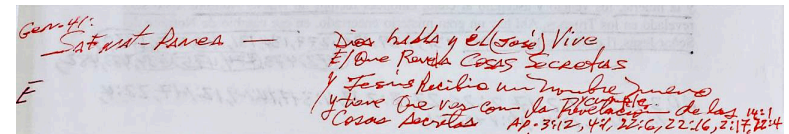 Gen. 41:
Safnat-Panea — Dios habla y él (José) Vive
El Que Revela Cosas Secretas
E y Jesús Recibio un Nombre Nuevo
y tiene que ver con la Revelacion de las
Cosas secretas Ap. 3:12, 4:1, 22:6, 22:16, 2:17, 22:4
14:1